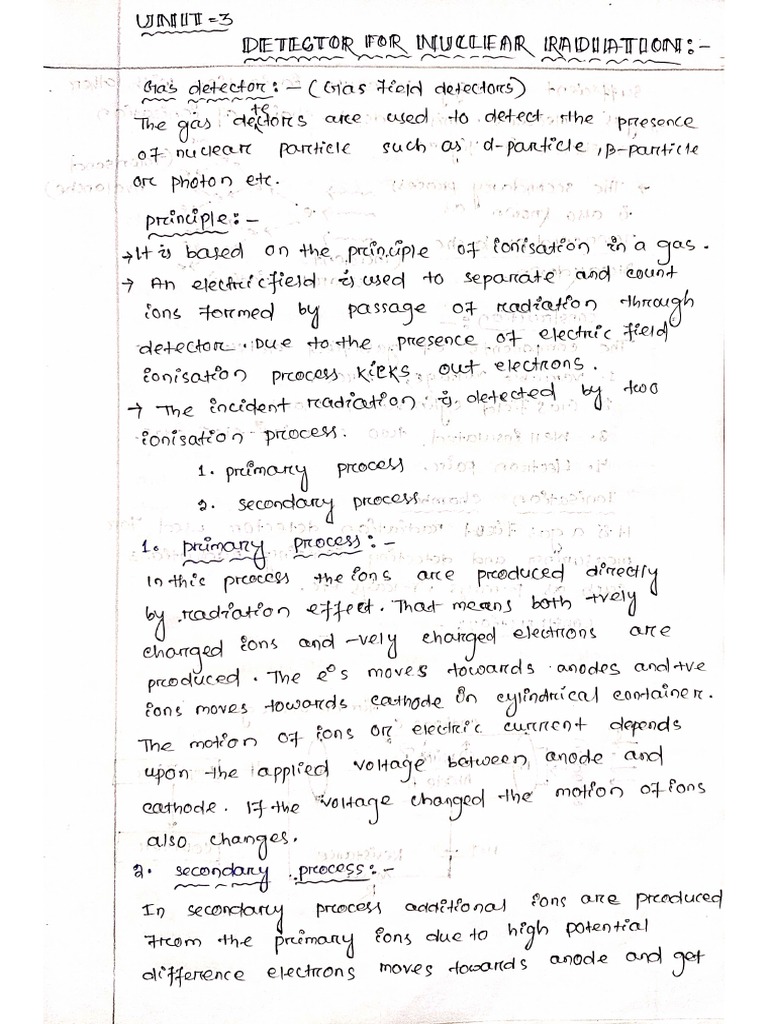 UNIT=3
DETECTOR FOR NUCLEAR RADIATION:-
Gas detector:- (Gas field detectors)
The gas detectors are used to detect the presence
of nuclear particle such as α-particle, β-particle
or photon etc.
Principle:-
→ It is based on the principle of ionisation in a gas.
→ An electric field is used to separate and count
ions formed by passage of radiation through
detector. Due to the presence of electric field
ionisation process kicks out electrons.
→ The incident radiation is detected by two
ionisation process.
1. primary process
2. secondary process
1. primary process:-
In this process the ions are produced directly
by radiation effect. That means both +vely
charged ions and -vely charged electrons are
produced. The e⁰s moves towards anodes and +ve
ions moves towards cathode in cylindrical container.
The motion of ions or electric current depends
upon the applied voltage between anode and
cathode. If the voltage changed the motion of ions
also changes.
2. secondary process:-
In secondary process additional ions are produced
from the primary ions due to high potential
difference electrons moves towards anode and get